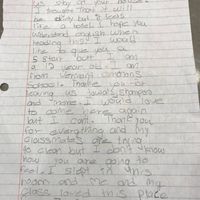 us stay at your house.
I thought that it will
be dirty but it looks
like a hotel. I hope you
understand english when
reading this. I would
like to give you a
5 star but I am
a 12 year old. I am
from Vermont
School. thank you for
leaving us towels, shampoos
and more. I would love
to come here again
but I can't. Thank you
for everything and my
classmates are trying
to clean but I don't know
how you are going to
feel. I slept in this
room and me and my
class loved this place